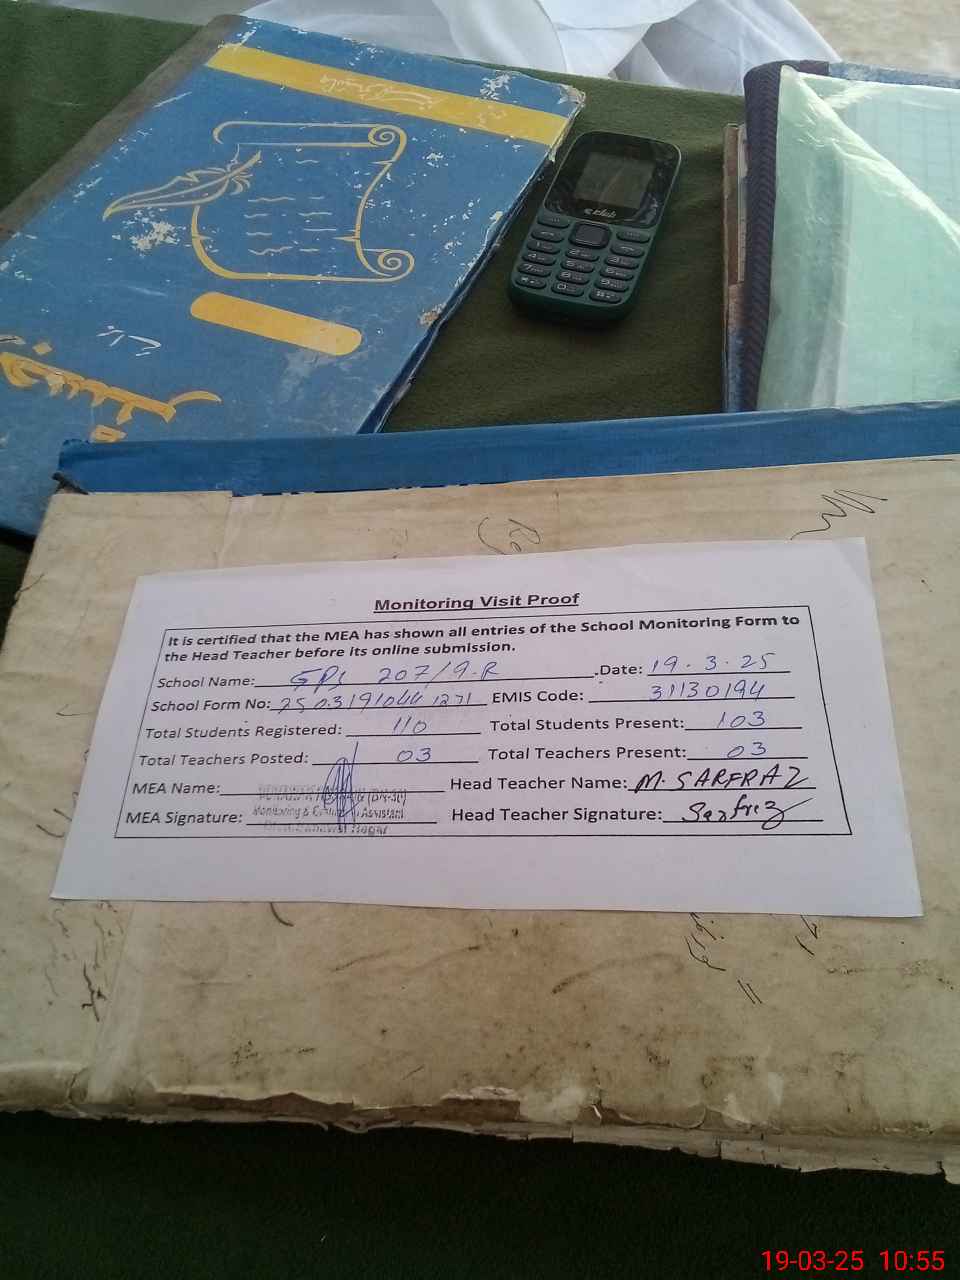 club
Monitoring Visit Proof
It is certified that the MEA has shown all entries of the School Monitoring Form to
the Head Teacher before its online submission.
School Name: GPS 207/9.R Date: 19.3.25
School Form No: 25031910441271 EMIS Code: 31130194
Total Students Registered: 110 Total Students Present: 103
Total Teachers Posted: 03 Total Teachers Present: 03
MEA Name: Head Teacher Name: M. SARFRAZ
Monitoring & Assistant
MEA Signature: Head Teacher Signature: Sarfraz
Nagar
19-03-25 10:55